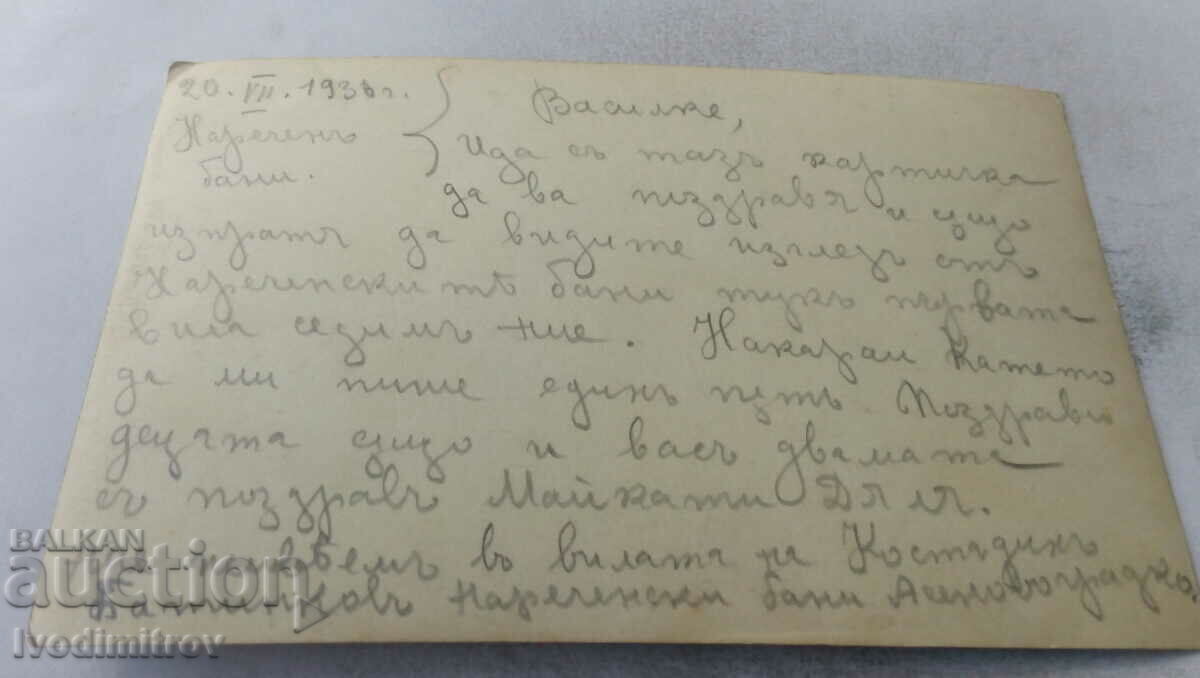 20. VII. 1938 г.
Нареченъ
бани.
Василке,
Ида съ тазъ картичка
да ва поздравѫ и също
изпратѫ да видите изгледъ отъ
Нареченскитѣ бани тукъ първата
вила седимъ ние. Накарай Катето
да ми пише единъ пѫть. Поздрави
децата също и васъ двамата
съ поздравъ Майка ти
живѣемъ въ вилата на Костадинъ
Нареченски бани Асеновградско
BALKAN
auction
Ivodimitrov